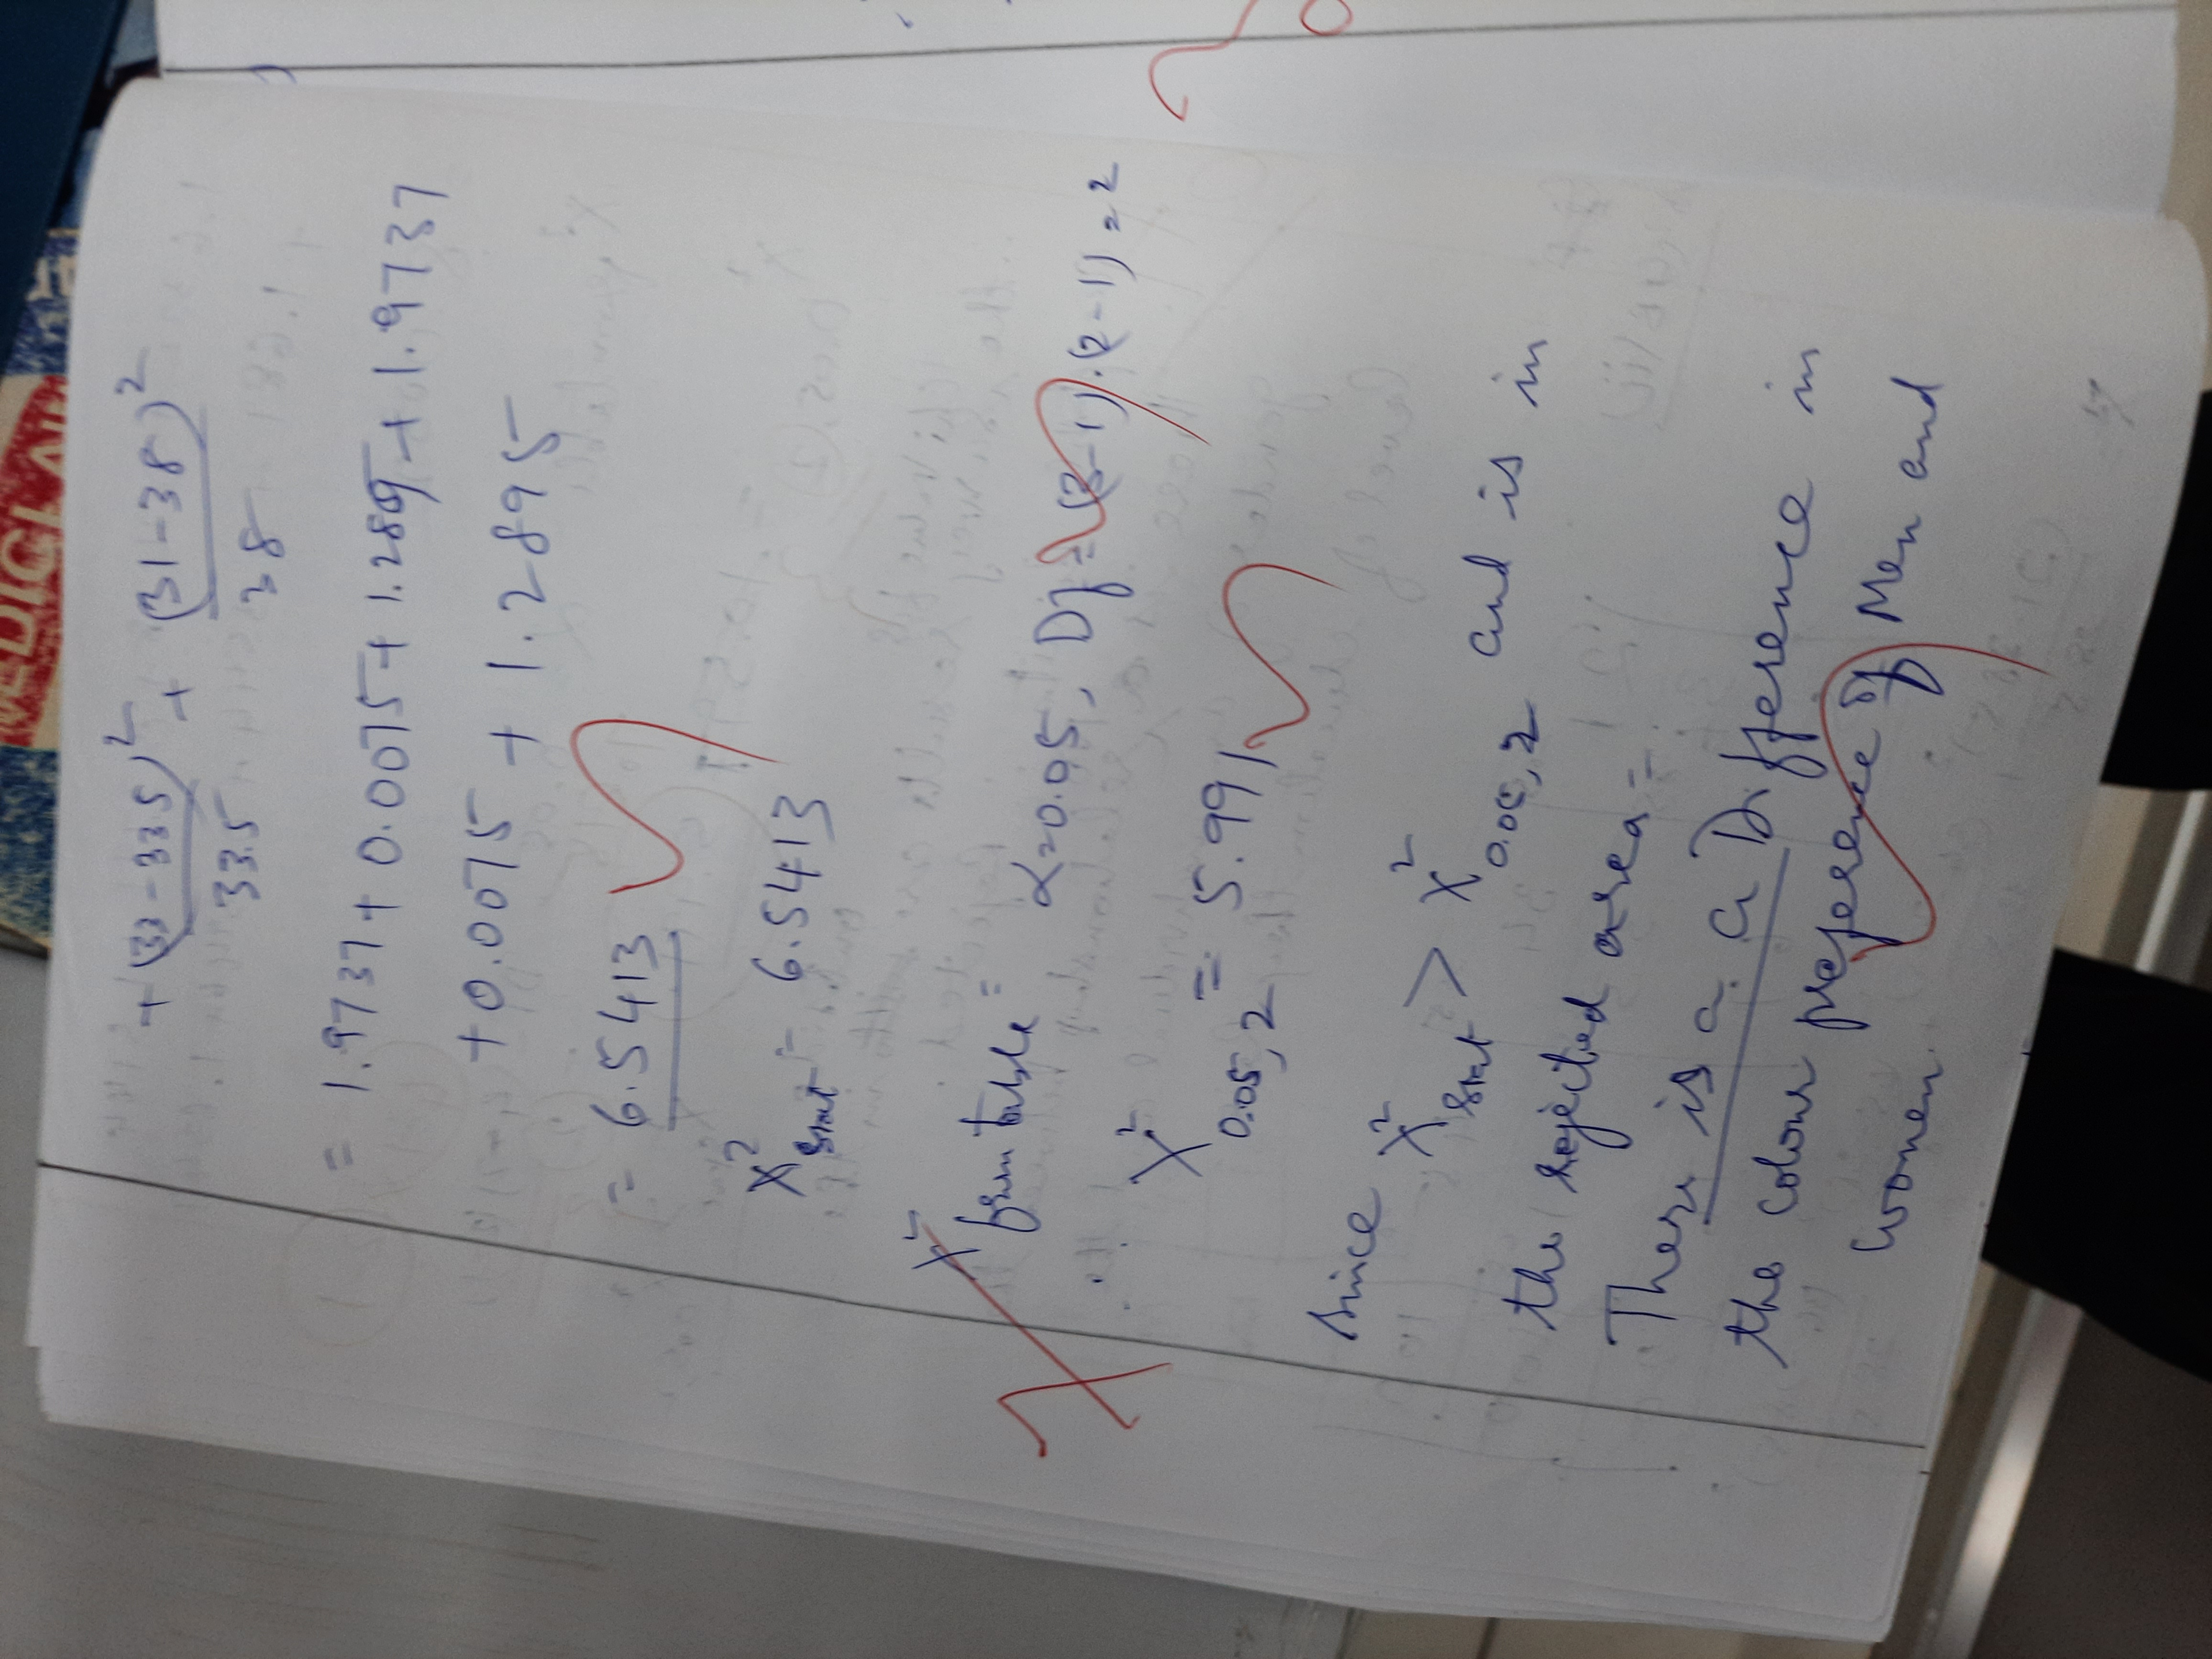 MEDICLAI
+ (33-33.5)² + (31-38)²
33.5 38
= 1.9737 + 0.0075 + 1.2895 + 1.9737
+ 0.0075 + 1.2895
= 6.5413
X² stat = 6.5413
X² from table = α=0.05, Df = (3-1).(2-1) = 2
X² 0.05, 2 = 5.991
since X² stat > X² 0.05, 2 and is in
the rejected area =
There is a a Difference in
the colour preference of Men and
women.